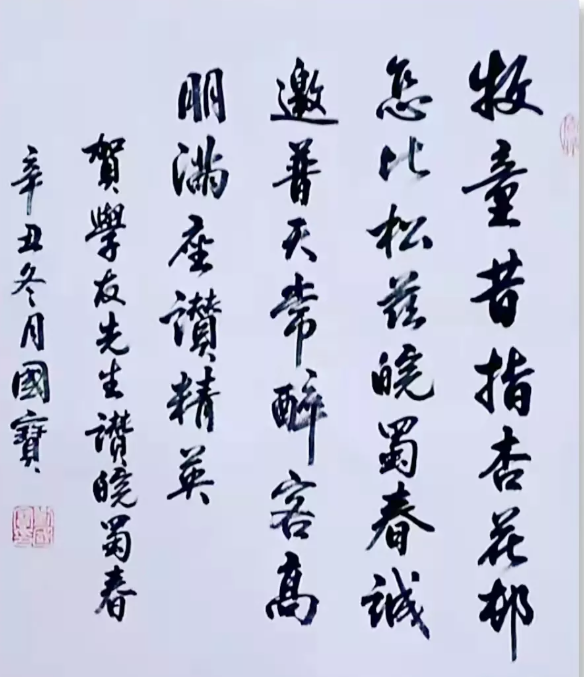 牧童昔指杏花邨
怎比松茲皖蜀春誠
邀普天常醉客高
朋滿座讃精英
賀學友先生讃皖蜀春
辛丑冬月國寶